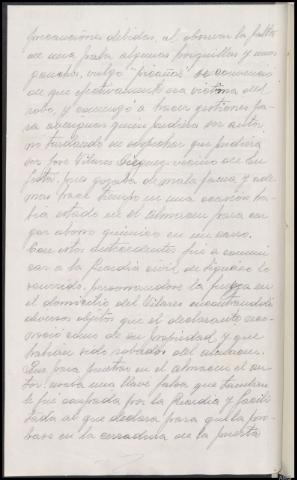 precauciones debidas, al observar la falta
de una pala algunas horquillas y unos
ganchos, vulgo "picañas" se convenció
de que efectivamente era víctima del
robo, y comenzó a hacer gestiones pa-
ra averiguar quien pudiera ser autor,
no tardando en sospechar que pudiera
ser José Vilares vecino de
que gozaba de mala fama y ade
mas hace tiempo en una ocasión ha-
bía estado en el almacén para car
gar abono químico en un carro.
Con estos antecedentes fué a comuni
car a la Guardia civil de lo
ocurrido, personandose la fuerza en
el domicilio del Vilares encontrandole
diversos objetos que el declarante reco-
noció como de su propiedad y que
habían sido robados del almacen.
Que para penetrar en el almacen el au
tor usaba una llave falsa que tambien
le fué ocupada por la Guardia y facili
tada al que declara para que la pro-
base en la cerradura de la puerta